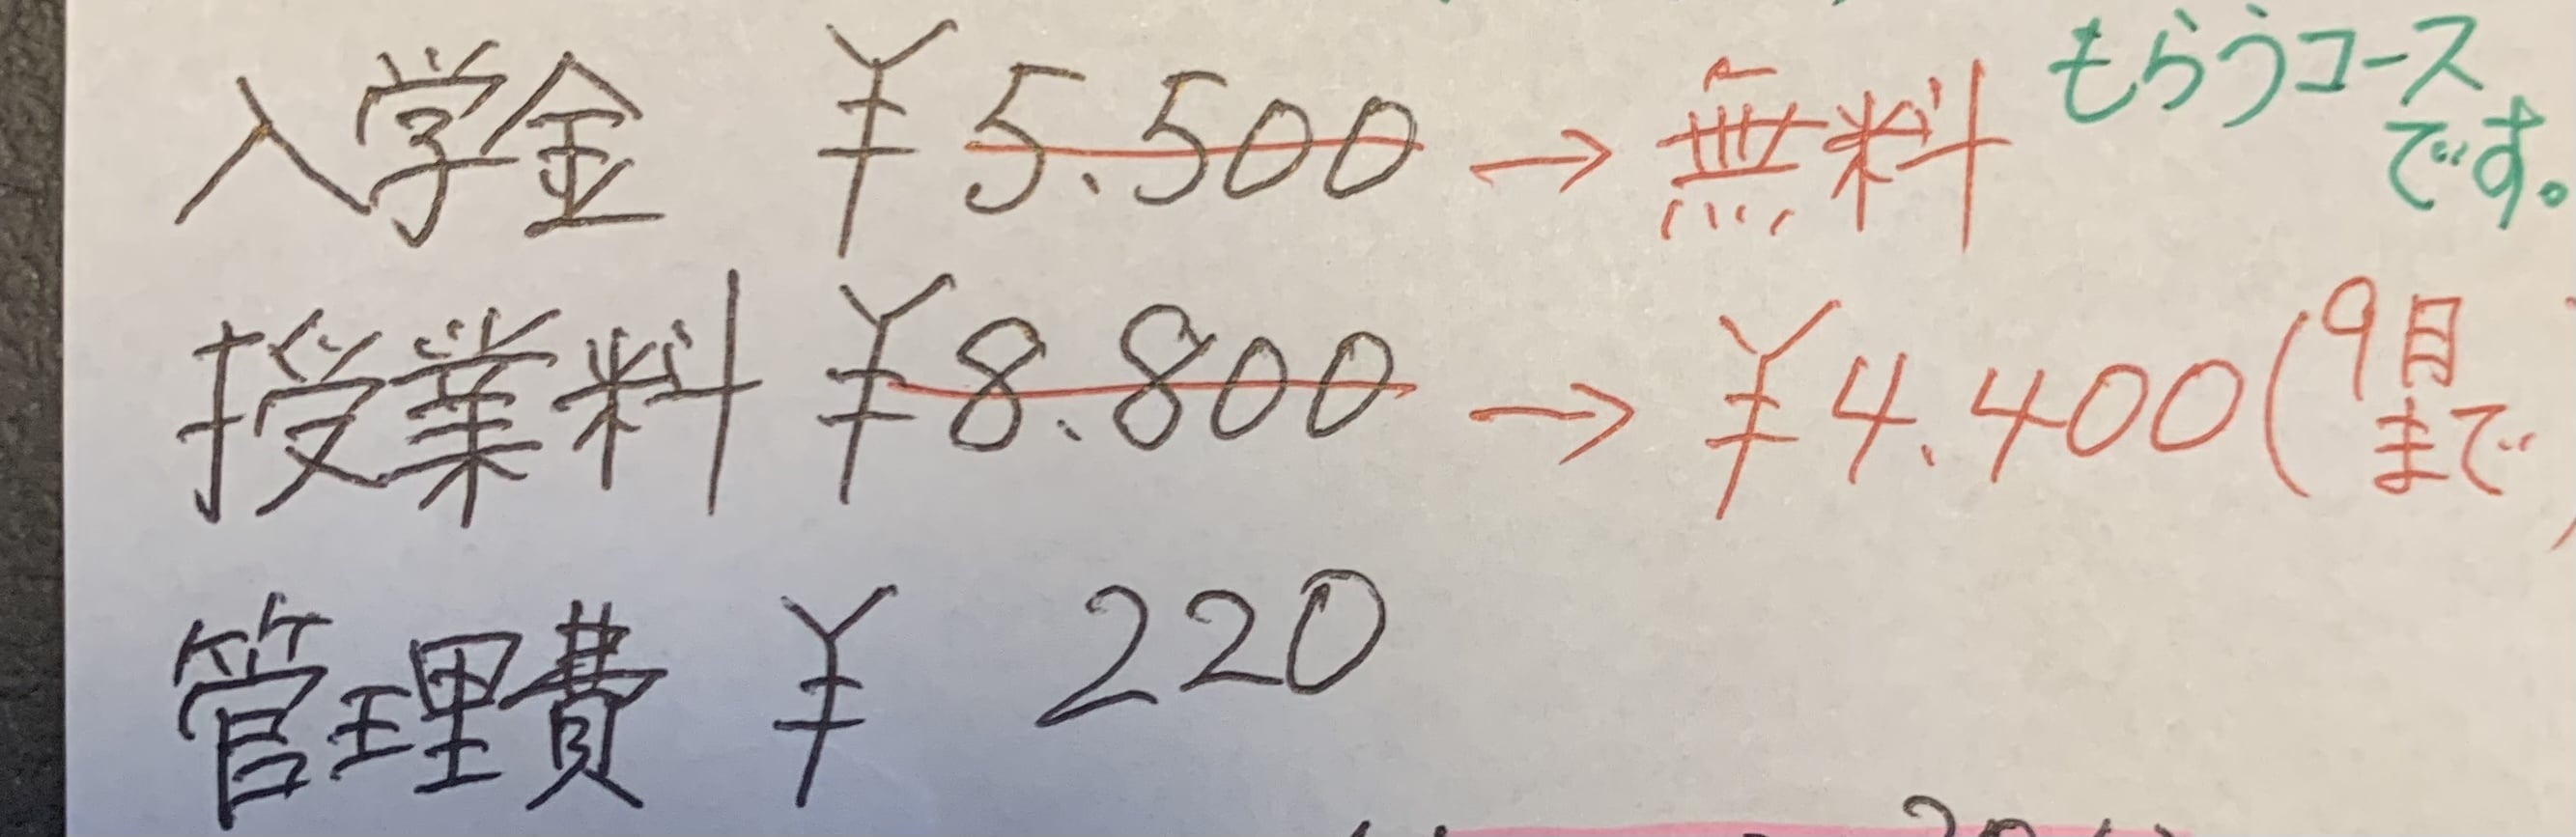 もらうコース
です。
入学金 ¥5.500 → 無料
授業料 ¥8.800 → ¥4.400 (9月
まで)
管理費 ¥ 220